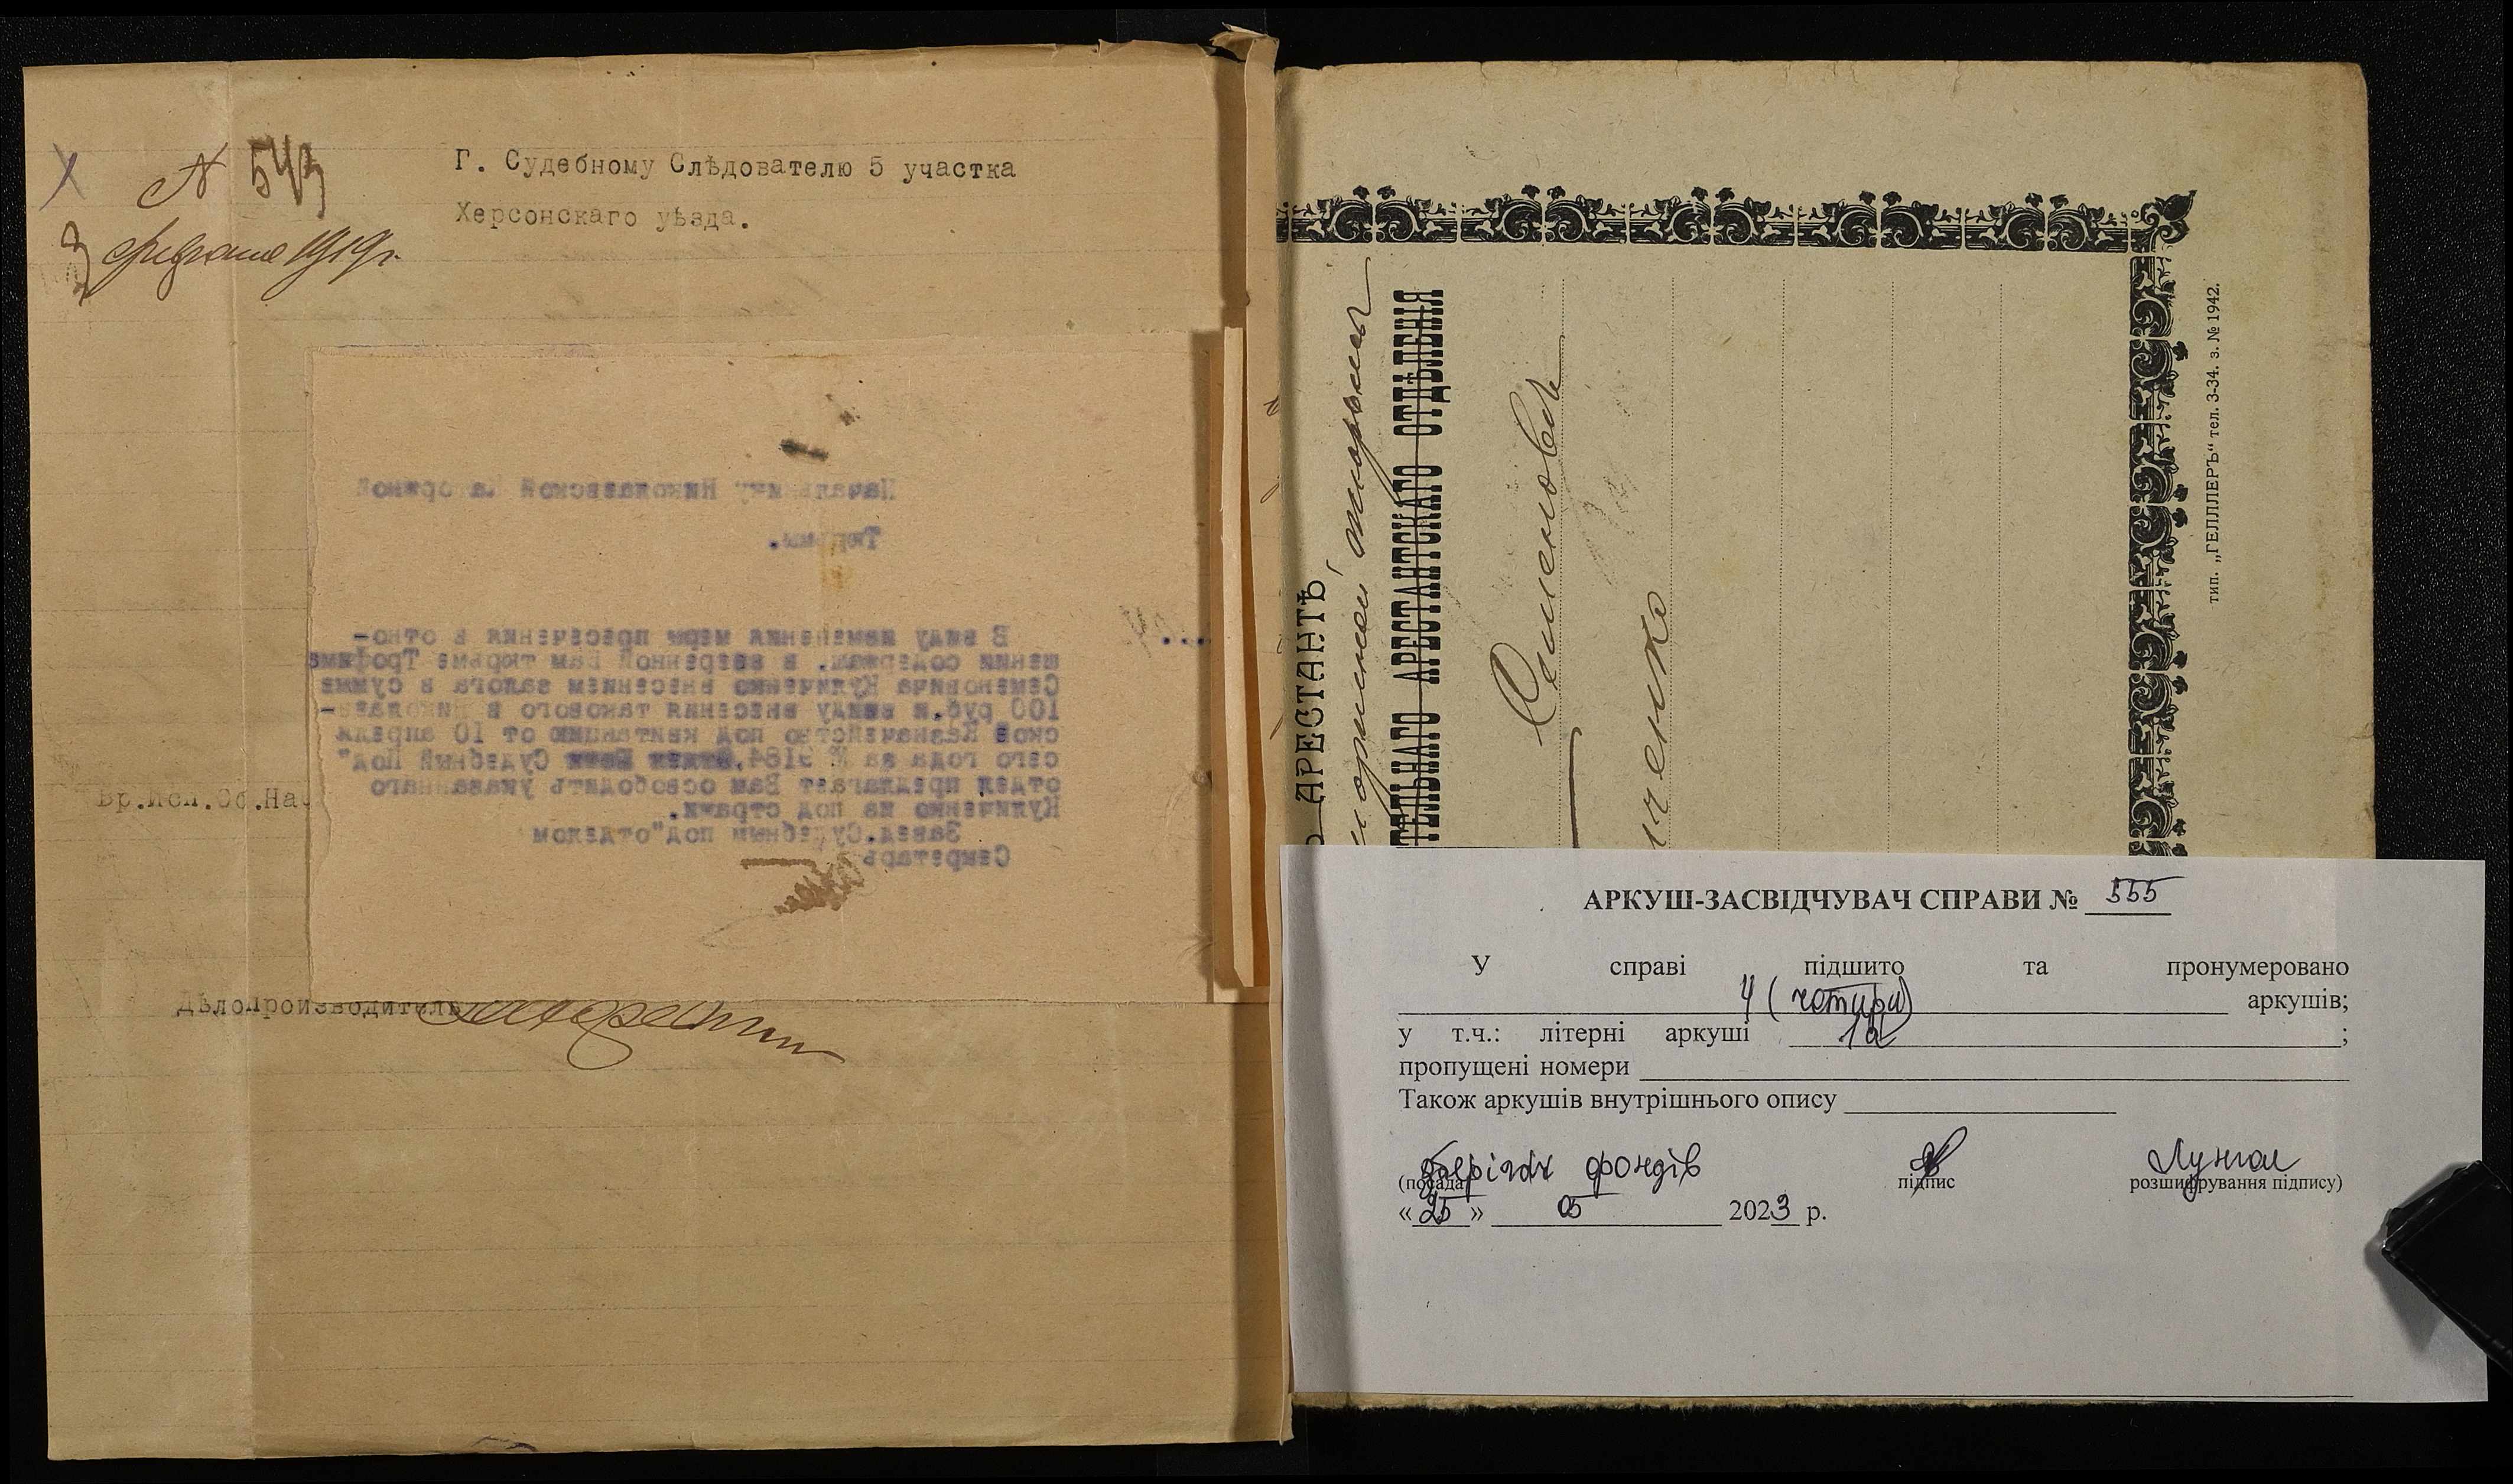 № 543
3 февраля 1919г.
Г. Судебному Слѣдователю 5 участка
Херсонскаго уѣзда.
Начальнику Николаевской Каторжной
Тюрьмы.
В виду изменения меры пресечения в отно-
шении содержащ. в вверенной Вам тюрьме Трофима
Семеновича Куличенко внесением залога в сумме
100 руб.и ввиду внесения такового в Николаев-
ское Казначейство под квитанцию от 10 апреля
сего года за № 9184, Судебный Под"
отдел предлагает Вам освободить указаннаго
Куличенко из под стражи.
Завед.Судебным под"отделом
Секретарь
Вр.Исп.Об.На
Дѣлопроизводитель
АРЕСТАНТЪ,
каторжной тюрьмы
ТЕЛЬНАГО АРЕСТАНТСКАГО ОТДѢЛЕНІЯ
Семеновъ
ченко
тип. „ГЕЛЛЕРЪ“ тел. 3-34. з. № 1942.
АРКУШ-ЗАСВІДЧУВАЧ СПРАВИ № 355
У справі підшито та пронумеровано
4 (чотири) аркушів;
у т.ч.: літерні аркуші 1а ;
пропущені номери
Також аркушів внутрішнього опису
Зберігач фондів Лунгол
(посада підпис розшифрування підпису)
« 25 » 05 2023 р.